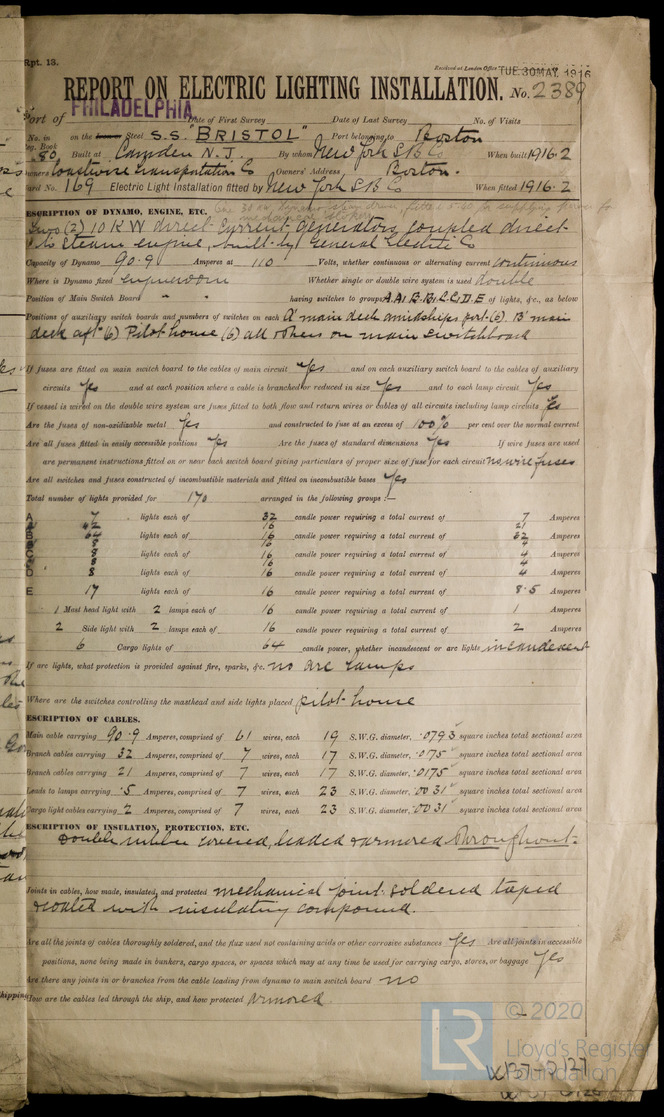 Rpt. 13.
Received at London Office TUE. 30 MAY. 1916
REPORT ON ELECTRIC LIGHTING INSTALLATION. No. 2389
Port of PHILADELPHIA Date of First Survey Date of Last Survey No. of Visits
No. in Reg. Book on the Steel S.S. "BRISTOL" Port belonging to Boston
80 Built at Camden N.J. By whom New York S B Co When built 1916.2
Owners Coastwise Transportation Co Owners' Address Boston.
Yard No. 169 Electric Light Installation fitted by New York S B Co When fitted 1916.2
DESCRIPTION OF DYNAMO, ENGINE, ETC.
Two (2) 10 KW direct current generators coupled direct
to steam engine, built by General Electric Co
Capacity of Dynamo 90.9 Amperes at 110 Volts, whether continuous or alternating current continuous
Where is Dynamo fixed engineroom Whether single or double wire system is used double
Position of Main Switch Board " " having switches to groups A.A1.B.B1.C.C1.D.E of lights, &c., as below
Positions of auxiliary switch boards and numbers of switches on each A' main deck amidships port (6). B' main
deck aft (6) Pilot house (6) all others on main switchboard
If fuses are fitted on main switch board to the cables of main circuit Yes and on each auxiliary switch board to the cables of auxiliary
circuits Yes and at each position where a cable is branched or reduced in size Yes and to each lamp circuit Yes
If vessel is wired on the double wire system are fuses fitted to both flow and return wires or cables of all circuits including lamp circuits Yes
Are the fuses of non-oxidizable metal Yes and constructed to fuse at an excess of 100% per cent over the normal current
Are all fuses fitted in easily accessible positions Yes Are the fuses of standard dimensions Yes If wire fuses are used
are permanent instructions fitted on or near each switch board giving particulars of proper size of fuse for each circuit no wire fuses
Are all switches and fuses constructed of incombustible materials and fitted on incombustible bases Yes
Total number of lights provided for 170 arranged in the following groups :—
A 7 lights each of 32 candle power requiring a total current of 7 Amperes
42 16 21
B 64 lights each of 16 candle power requiring a total current of 32 Amperes
8 16 4
C 8 lights each of 16 candle power requiring a total current of 4 Amperes
8 16 4
D 8 lights each of 16 candle power requiring a total current of 4 Amperes
E 17 lights each of 16 candle power requiring a total current of 8.5 Amperes
1 Mast head light with 2 lamps each of 16 candle power requiring a total current of 1 Amperes
2 Side light with 2 lamps each of 16 candle power requiring a total current of 2 Amperes
6 Cargo lights of 64 candle power, whether incandescent or arc lights incandescent
If arc lights, what protection is provided against fire, sparks, &c. no arc lamps
Where are the switches controlling the masthead and side lights placed pilot house
DESCRIPTION OF CABLES.
Main cable carrying 90.9 Amperes, comprised of 61 wires, each 19 S.W.G. diameter, .0793 square inches total sectional area
Branch cables carrying 32 Amperes, comprised of 7 wires, each 17 S.W.G. diameter, .0175 square inches total sectional area
Branch cables carrying 21 Amperes, comprised of 7 wires, each 17 S.W.G. diameter, .0175 square inches total sectional area
Leads to lamps carrying .5 Amperes, comprised of 7 wires, each 23 S.W.G. diameter, .0031 square inches total sectional area
Cargo light cables carrying 2 Amperes, comprised of 7 wires, each 23 S.W.G. diameter, .0031 square inches total sectional area
DESCRIPTION OF INSULATION, PROTECTION, ETC.
Double rubber covered, leaded & armored throughout.
Joints in cables, how made, insulated, and protected mechanical joint soldered taped
& coated with insulating compound.
Are all the joints of cables thoroughly soldered, and the flux used not containing acids or other corrosive substances Yes Are all joints in accessible
positions, none being made in bunkers, cargo spaces, or spaces which may at any time be used for carrying cargo, stores, or baggage Yes
Are there any joints in or branches from the cable leading from dynamo to main switch board no
How are the cables led through the ship, and how protected armored
© 2020
LR Lloyd's Register
Foundation
W37-0127